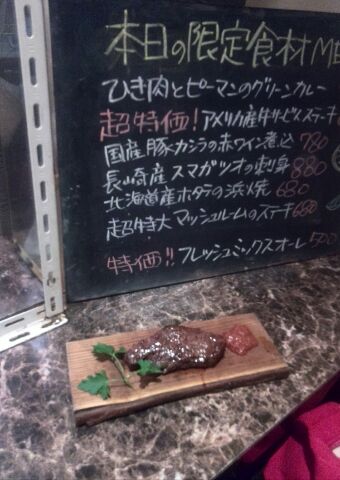 本日の限定食材ME
ひき肉とピーマンのグリーンカレー
超特価!アメリカ産牛サービスステーキ
国産豚カシラの赤ワイン煮込 780
長崎産スマガツオの刺身 880
北海道産ホタテの浜焼 680
超特大マッシュルームのステーキ 680
特価!!フレッシュミックスオーレ 500